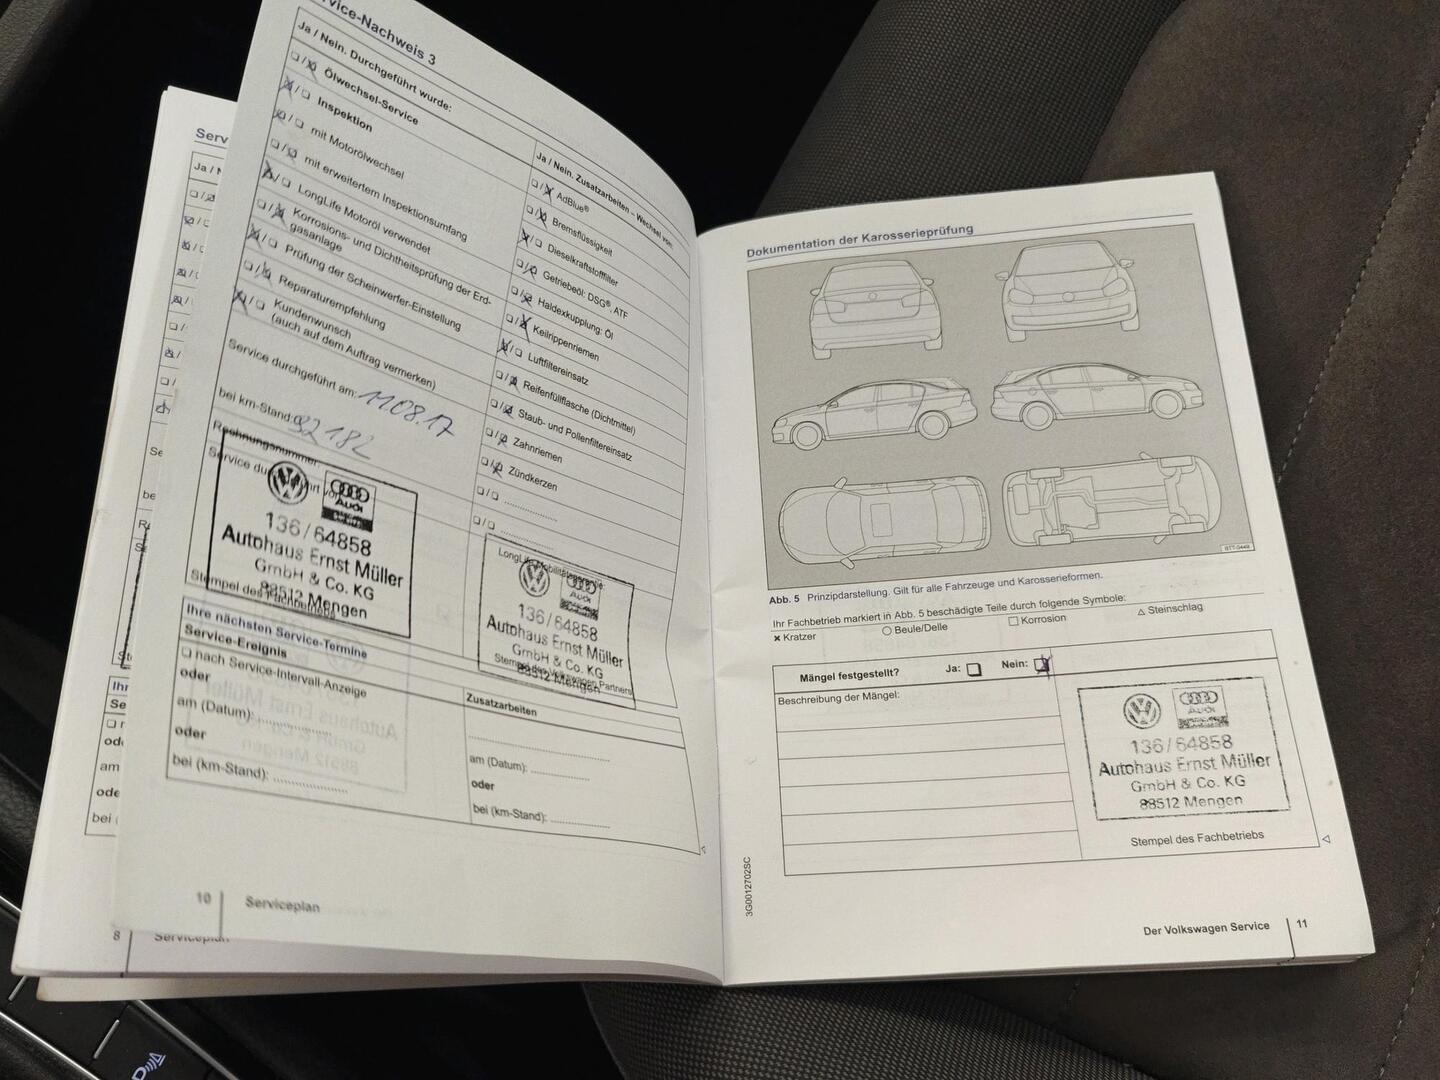 Serv
rvice-Nachweis 3
Ja / Nein. Durchgeführt wurde:
Ölwechsel-Service
Inspektion
mit Motorölwechsel
mit erweitertem Inspektionsumfang
LongLife Motoröl verwendet
Korrosions- und Dichtheitsprüfung der Erd-
gasanlage
Prüfung der Scheinwerfer-Einstellung
Reparaturempfehlung
Kundenwunsch
(auch auf dem Auftrag vermerken)
Service durchgeführt am: 11.08.17
bei km-Stand: 92 182
Rechnungsnummer:
Ja / Nein. Zusatzarbeiten – Wechsel von:
AdBlue®
Bremsflüssigkeit
Dieselkraftstofffilter
Getriebeöl: DSG®, ATF
Haldexkupplung: Öl
Keilrippenriemen
Luftfiltereinsatz
Reifenfüllflasche (Dichtmittel)
Staub- und Pollenfiltereinsatz
Zahnriemen
Zündkerzen
Audi
136/64858
Autohaus Ernst Müller
GmbH & Co. KG
88512 Mengen
Stempel des Fachbetriebs
LongLife Mobilitätsgarantie:
Audi
136/64858
Autohaus Ernst Müller
GmbH & Co. KG
88512 Mengen
Stempel des Volkswagen Partners
Ihre nächsten Service-Termine
Service-Ereignis
nach Service-Intervall-Anzeige
oder
am (Datum):
oder
bei (km-Stand):
Zusatzarbeiten
am (Datum):
oder
bei (km-Stand):
10 Serviceplan
8 Serviceplan
Dokumentation der Karosserieprüfung
BTT-0449
Abb. 5 Prinzipdarstellung. Gilt für alle Fahrzeuge und Karosserieformen.
Ihr Fachbetrieb markiert in Abb. 5 beschädigte Teile durch folgende Symbole:
Kratzer Beule/Delle Korrosion Steinschlag
Mängel festgestellt? Ja: Nein:
Beschreibung der Mängel:
Audi
136/64858
Autohaus Ernst Müller
GmbH & Co. KG
88512 Mengen
Stempel des Fachbetriebs
3G0012702SC
Der Volkswagen Service 11